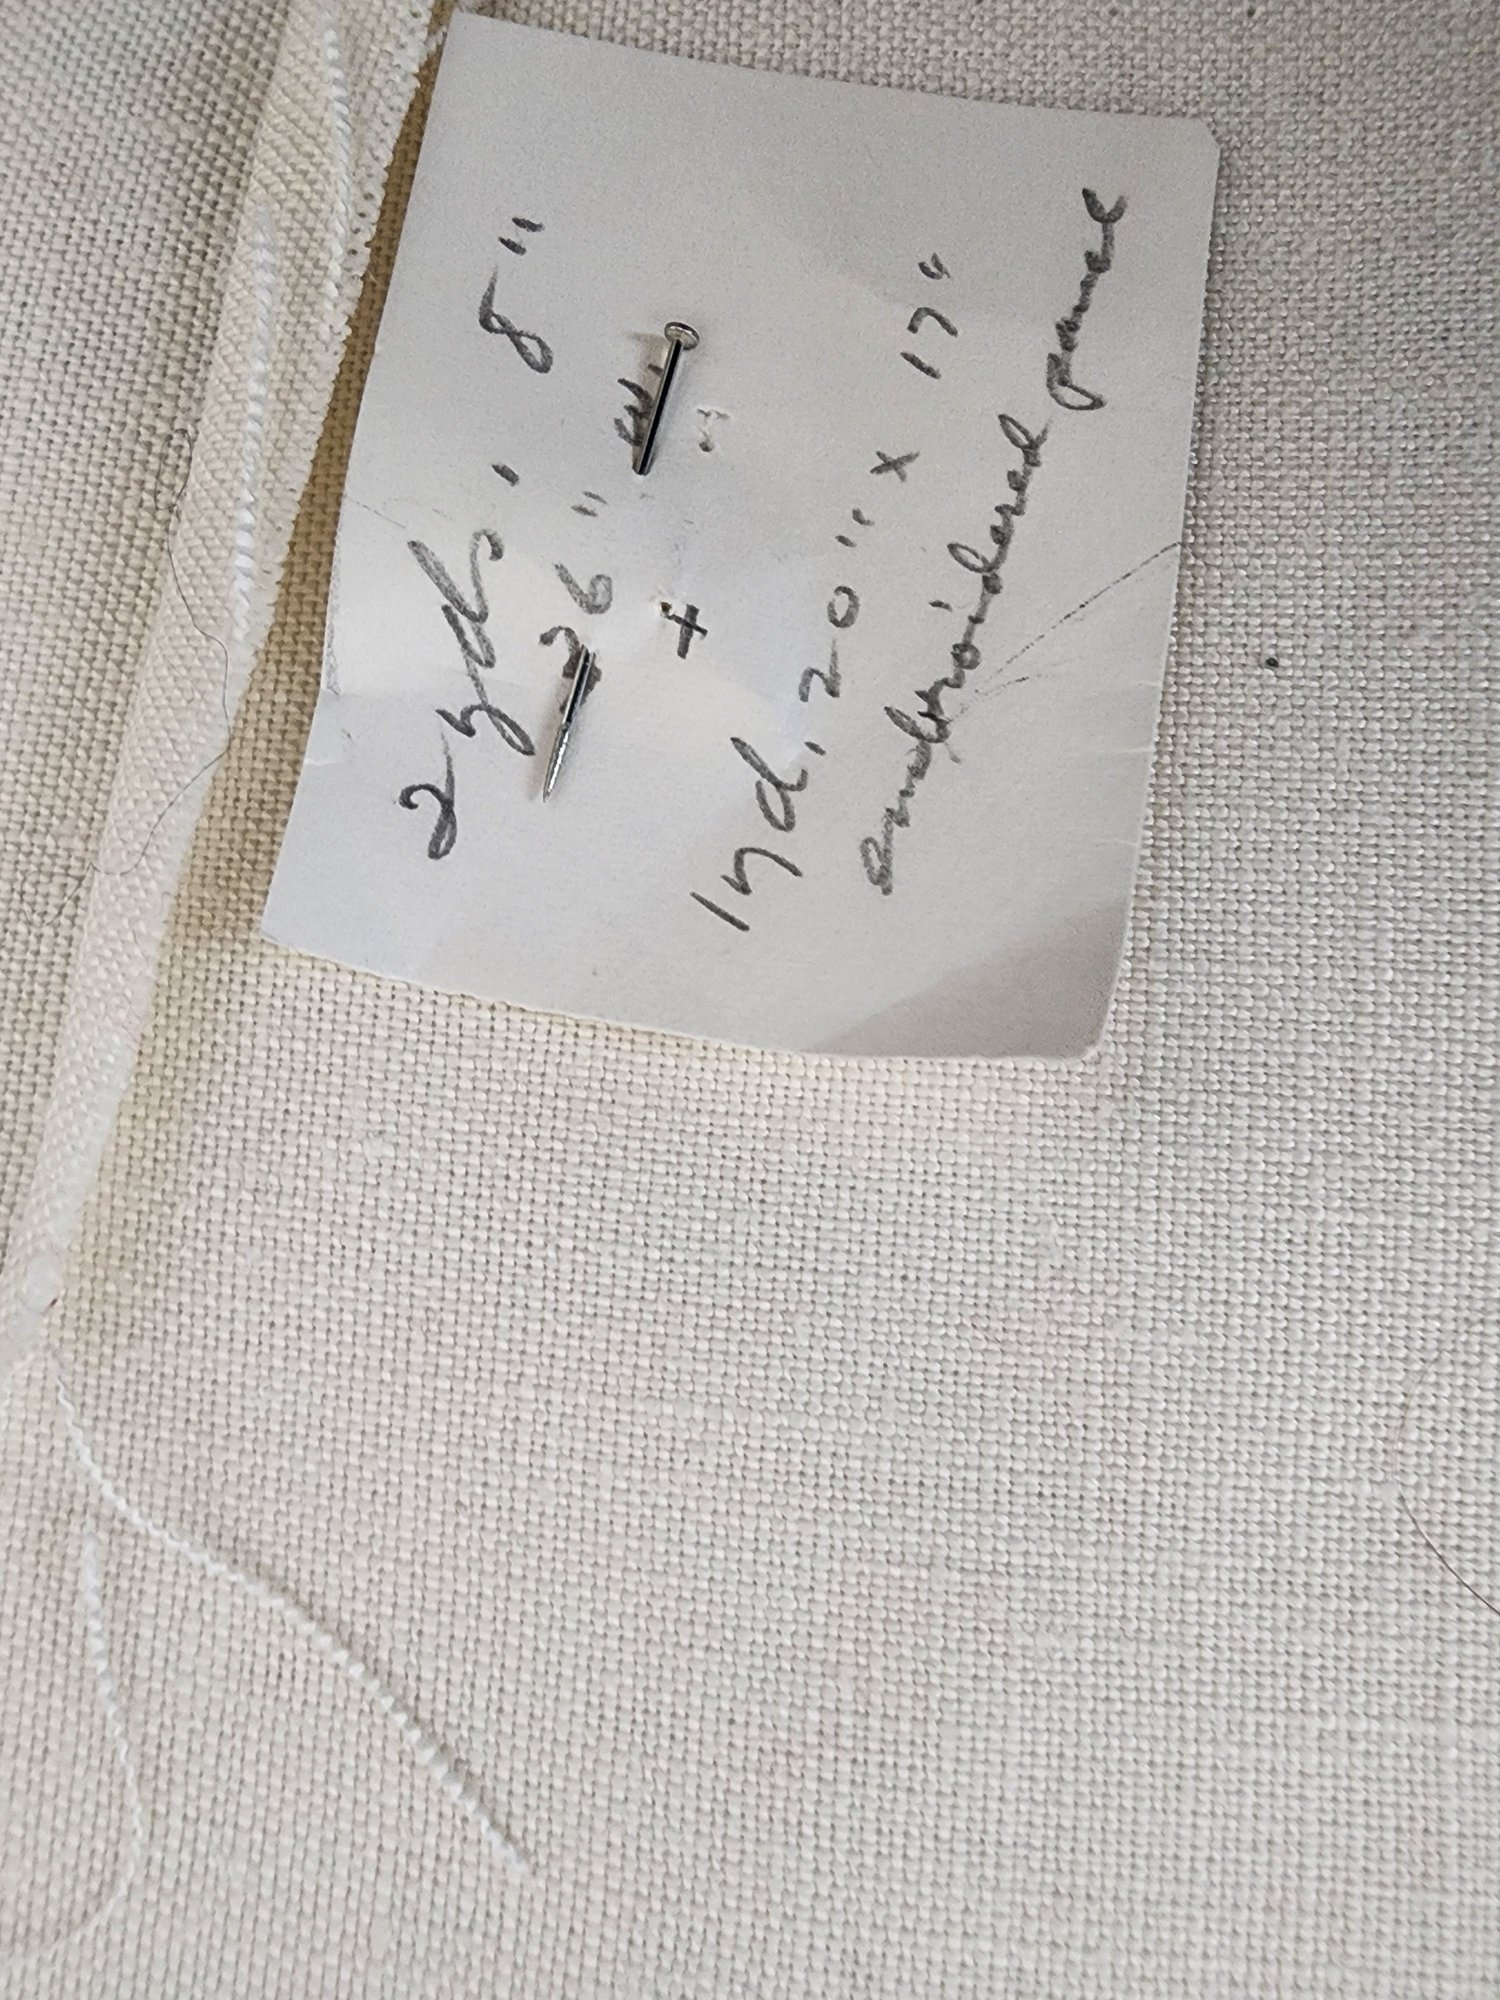 2 yds, 8"
36" w.
+
1 yd, 20" x 17"
embroidered panel